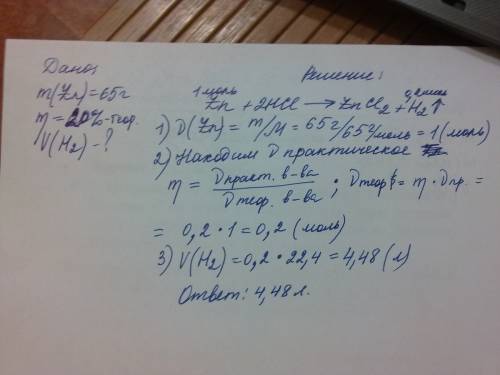 Дано:
m(Zn)=65г
η=20%-теор.
V(H₂)-?
Решение:
1 моль 0,2 моль
Zn + 2HCl → ZnCl₂ + H₂↑
1) D(Zn) = m/M = 65г/65г/моль = 1(моль)
2) Находим D практическое
η = Dпракт. в-ва / Dтеор. в-ва ; Dтеор = η · Dпр. =
= 0,2 · 1 = 0,2 (моль)
3) V(H₂) = 0,2 · 22,4 = 4,48 (л)
Ответ: 4,48 л.